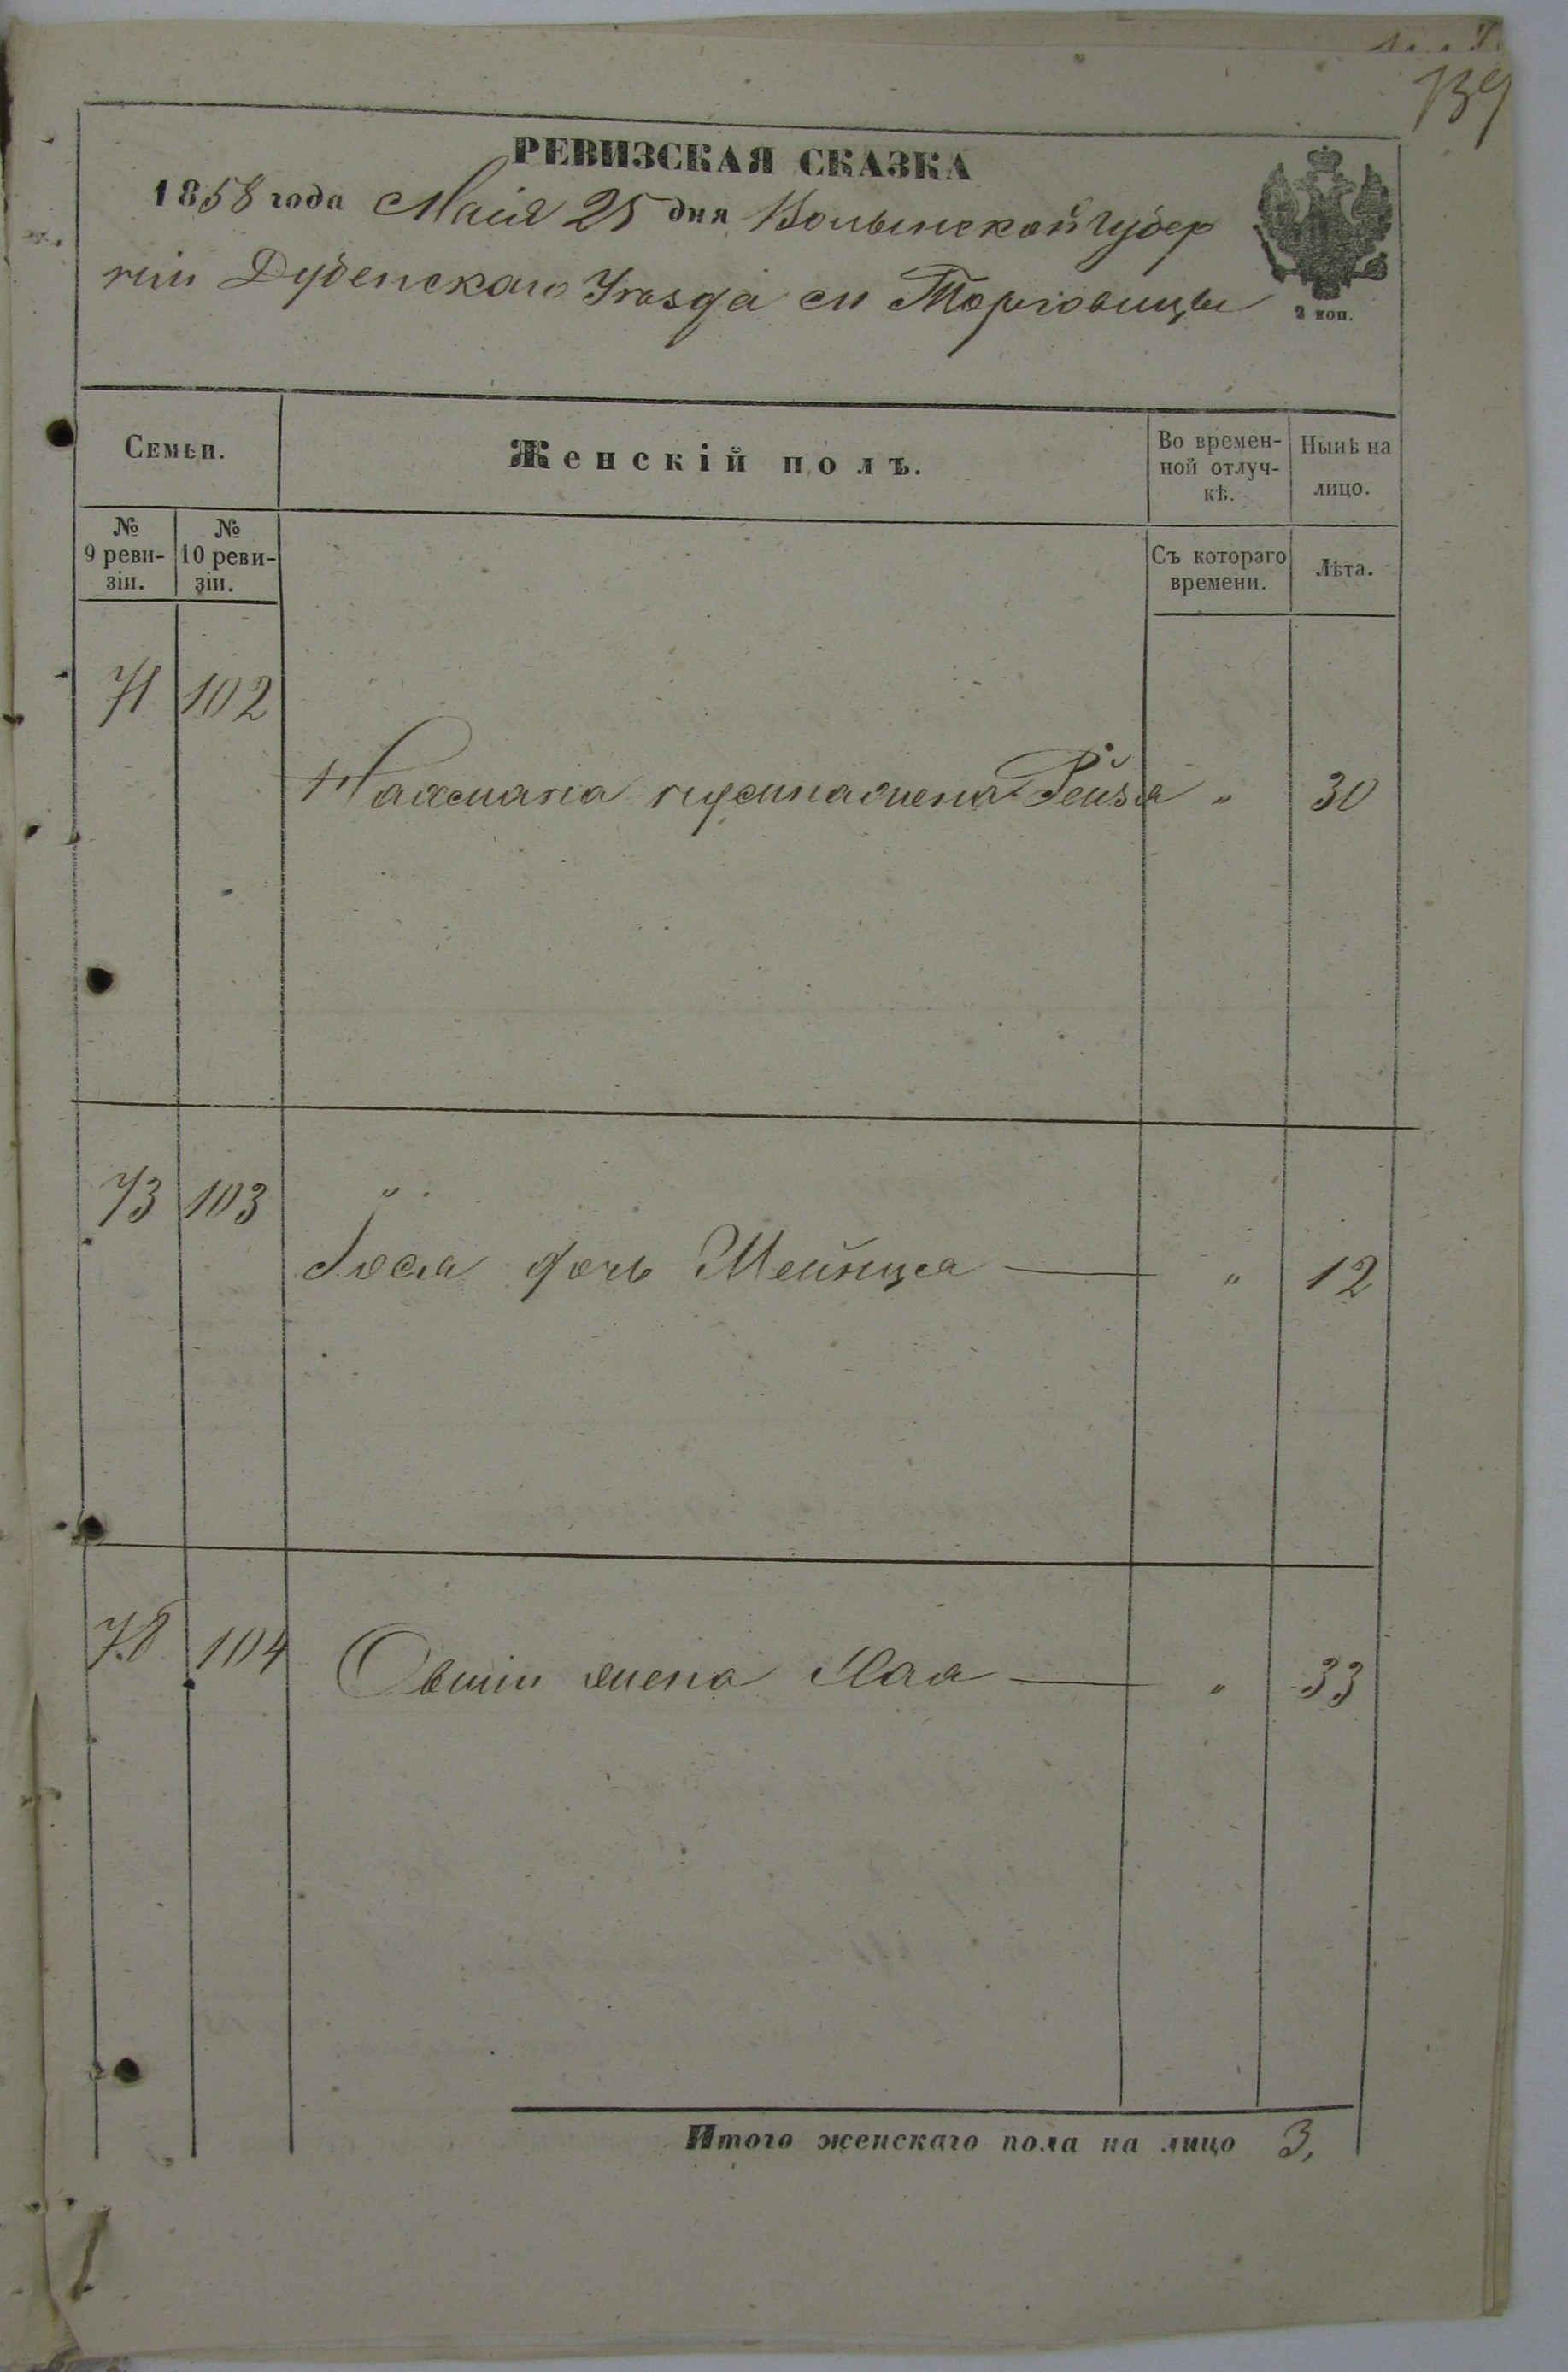 139
РЕВИЗСКАЯ СКАЗКА
1858 года Маія 25 дня Волынской Губер
ніи Дубенскаго Уѣзда м Торговицы
2 коп.
Семьи.
Женскій полъ.
Во времен-
ной отлуч-
кѣ.
Нынѣ на
лицо.
№
9 реви-
зіи.
№
10 реви-
зіи.
Съ котораго
времени.
Лѣта.
71 102
Нахмана жена Рейзя " 30
73 103 "
дочь Мейнца " 12
78 104 Овшіи жена Хая " 33
Итого женскаго пола на лицо 3,